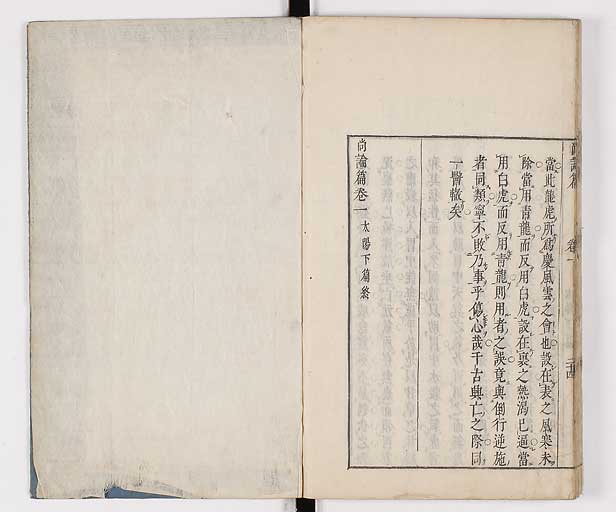 當此龍虎所爲慶風雲之會也設在表之風寒未
除當用青龍而反用白虎設在裏之熱渴已逼當
用白虎而反用青龍則用者之誤竟與倒行逆施
者同類寧不敗乃事乎傷心哉千古興亡之際同
一醫轍矣
尚論篇卷一 太陽下篇終